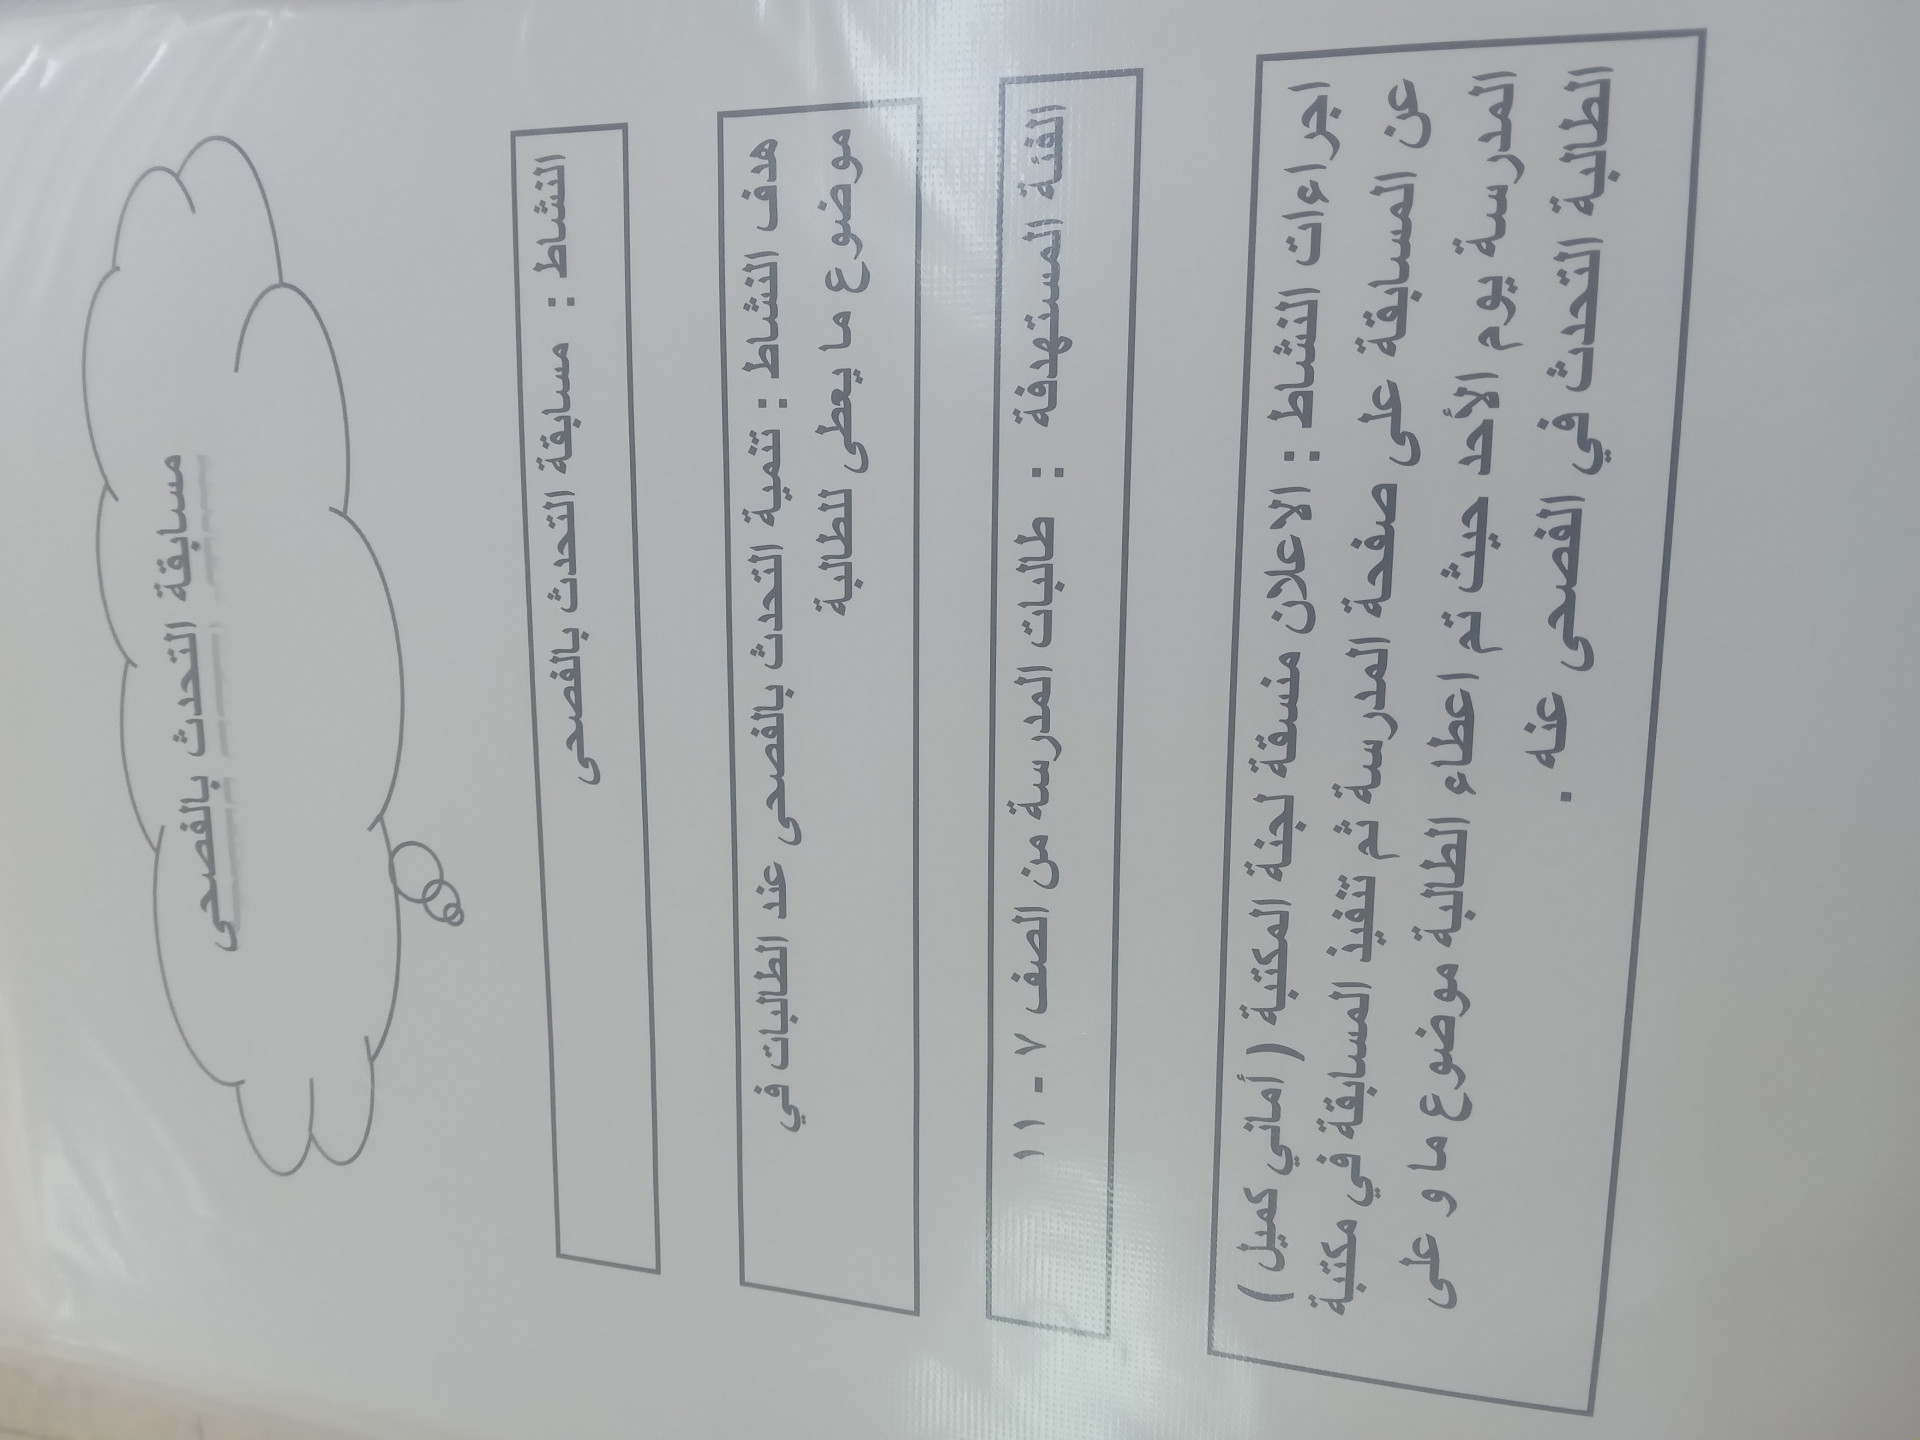 مسابقة التحدث بالفصحى
النشاط : مسابقة التحدث بالفصحى
هدف النشاط : تنمية التحدث بالفصحى عند الطالبات في
موضوع ما يعطى للطالبة
الفئة المستهدفة : طالبات المدرسة من الصف ٧ - ١١
اجراءات النشاط : الاعلان منسقة لجنة المكتبة ( أماني كميل )
عن المسابقة على صفحة المدرسة ثم تنفيذ المسابقة في مكتبة
المدرسة يوم الأحد حيث تم اعطاء الطالبة موضوع ما و على
الطالبة التحدث في الفصحى عنه .